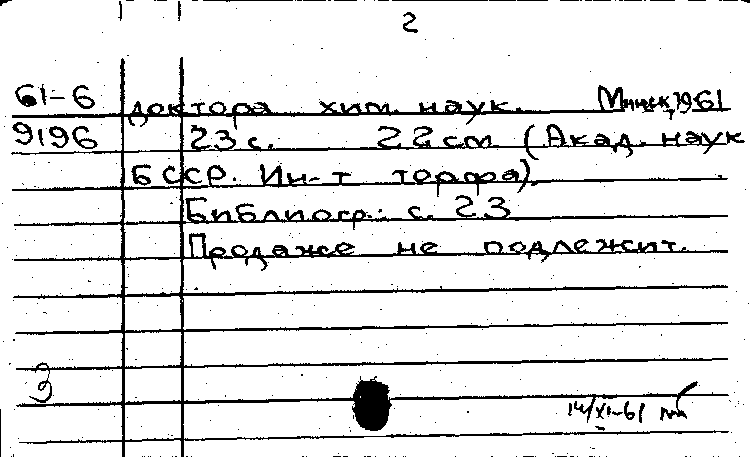 2
61-6 доктора хим. наук. Минск, 1961
9196 23 с. 22 см (Акад. наук
БССР. Ин-т торфа).
Библиогр.: с. 23
Продаже не подлежит.
3
14/XI-61